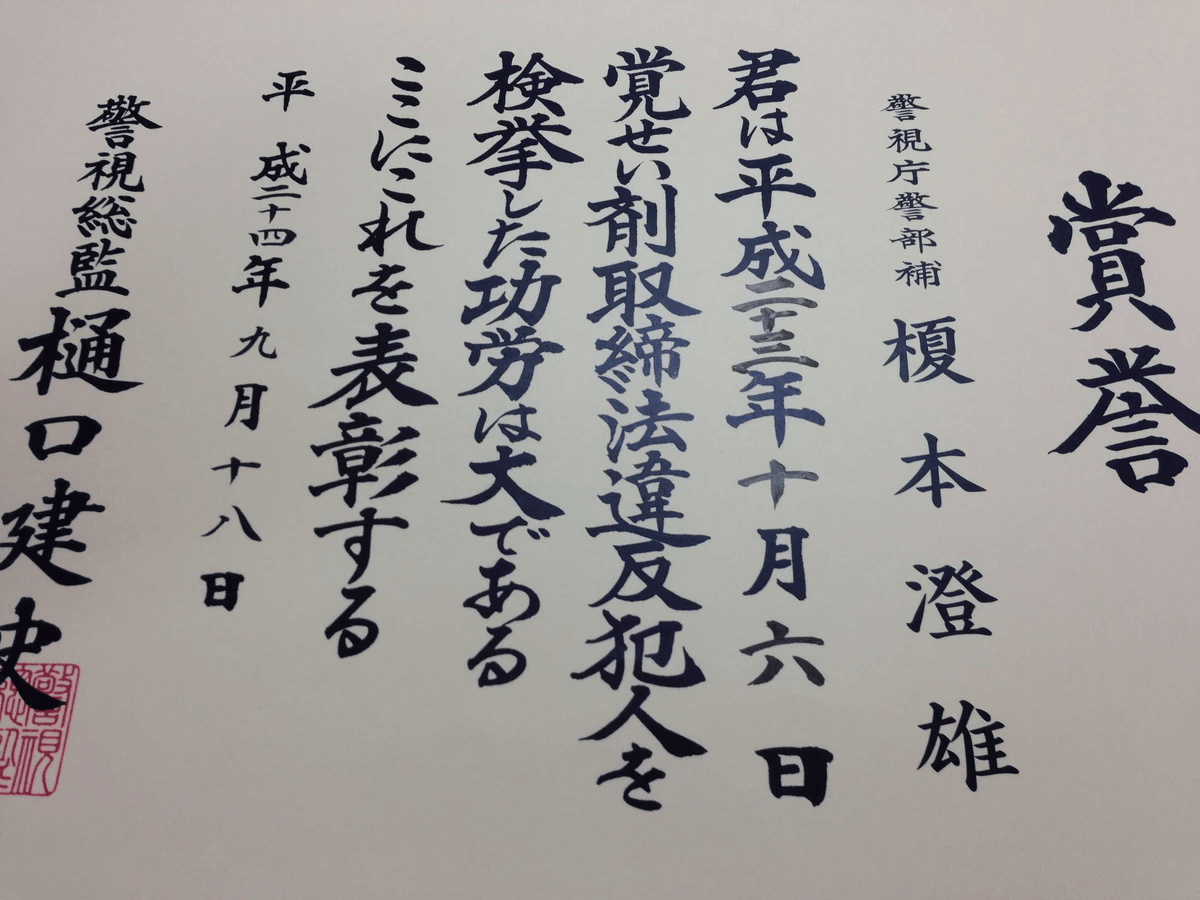 賞誉
警視庁警部補 榎本澄雄
君は平成二十三年十月六日
覚せい剤取締法違反犯人を
検挙した功労は大である
ここにこれを表彰する
平成二十四年九月十八日
警視総監樋口建史